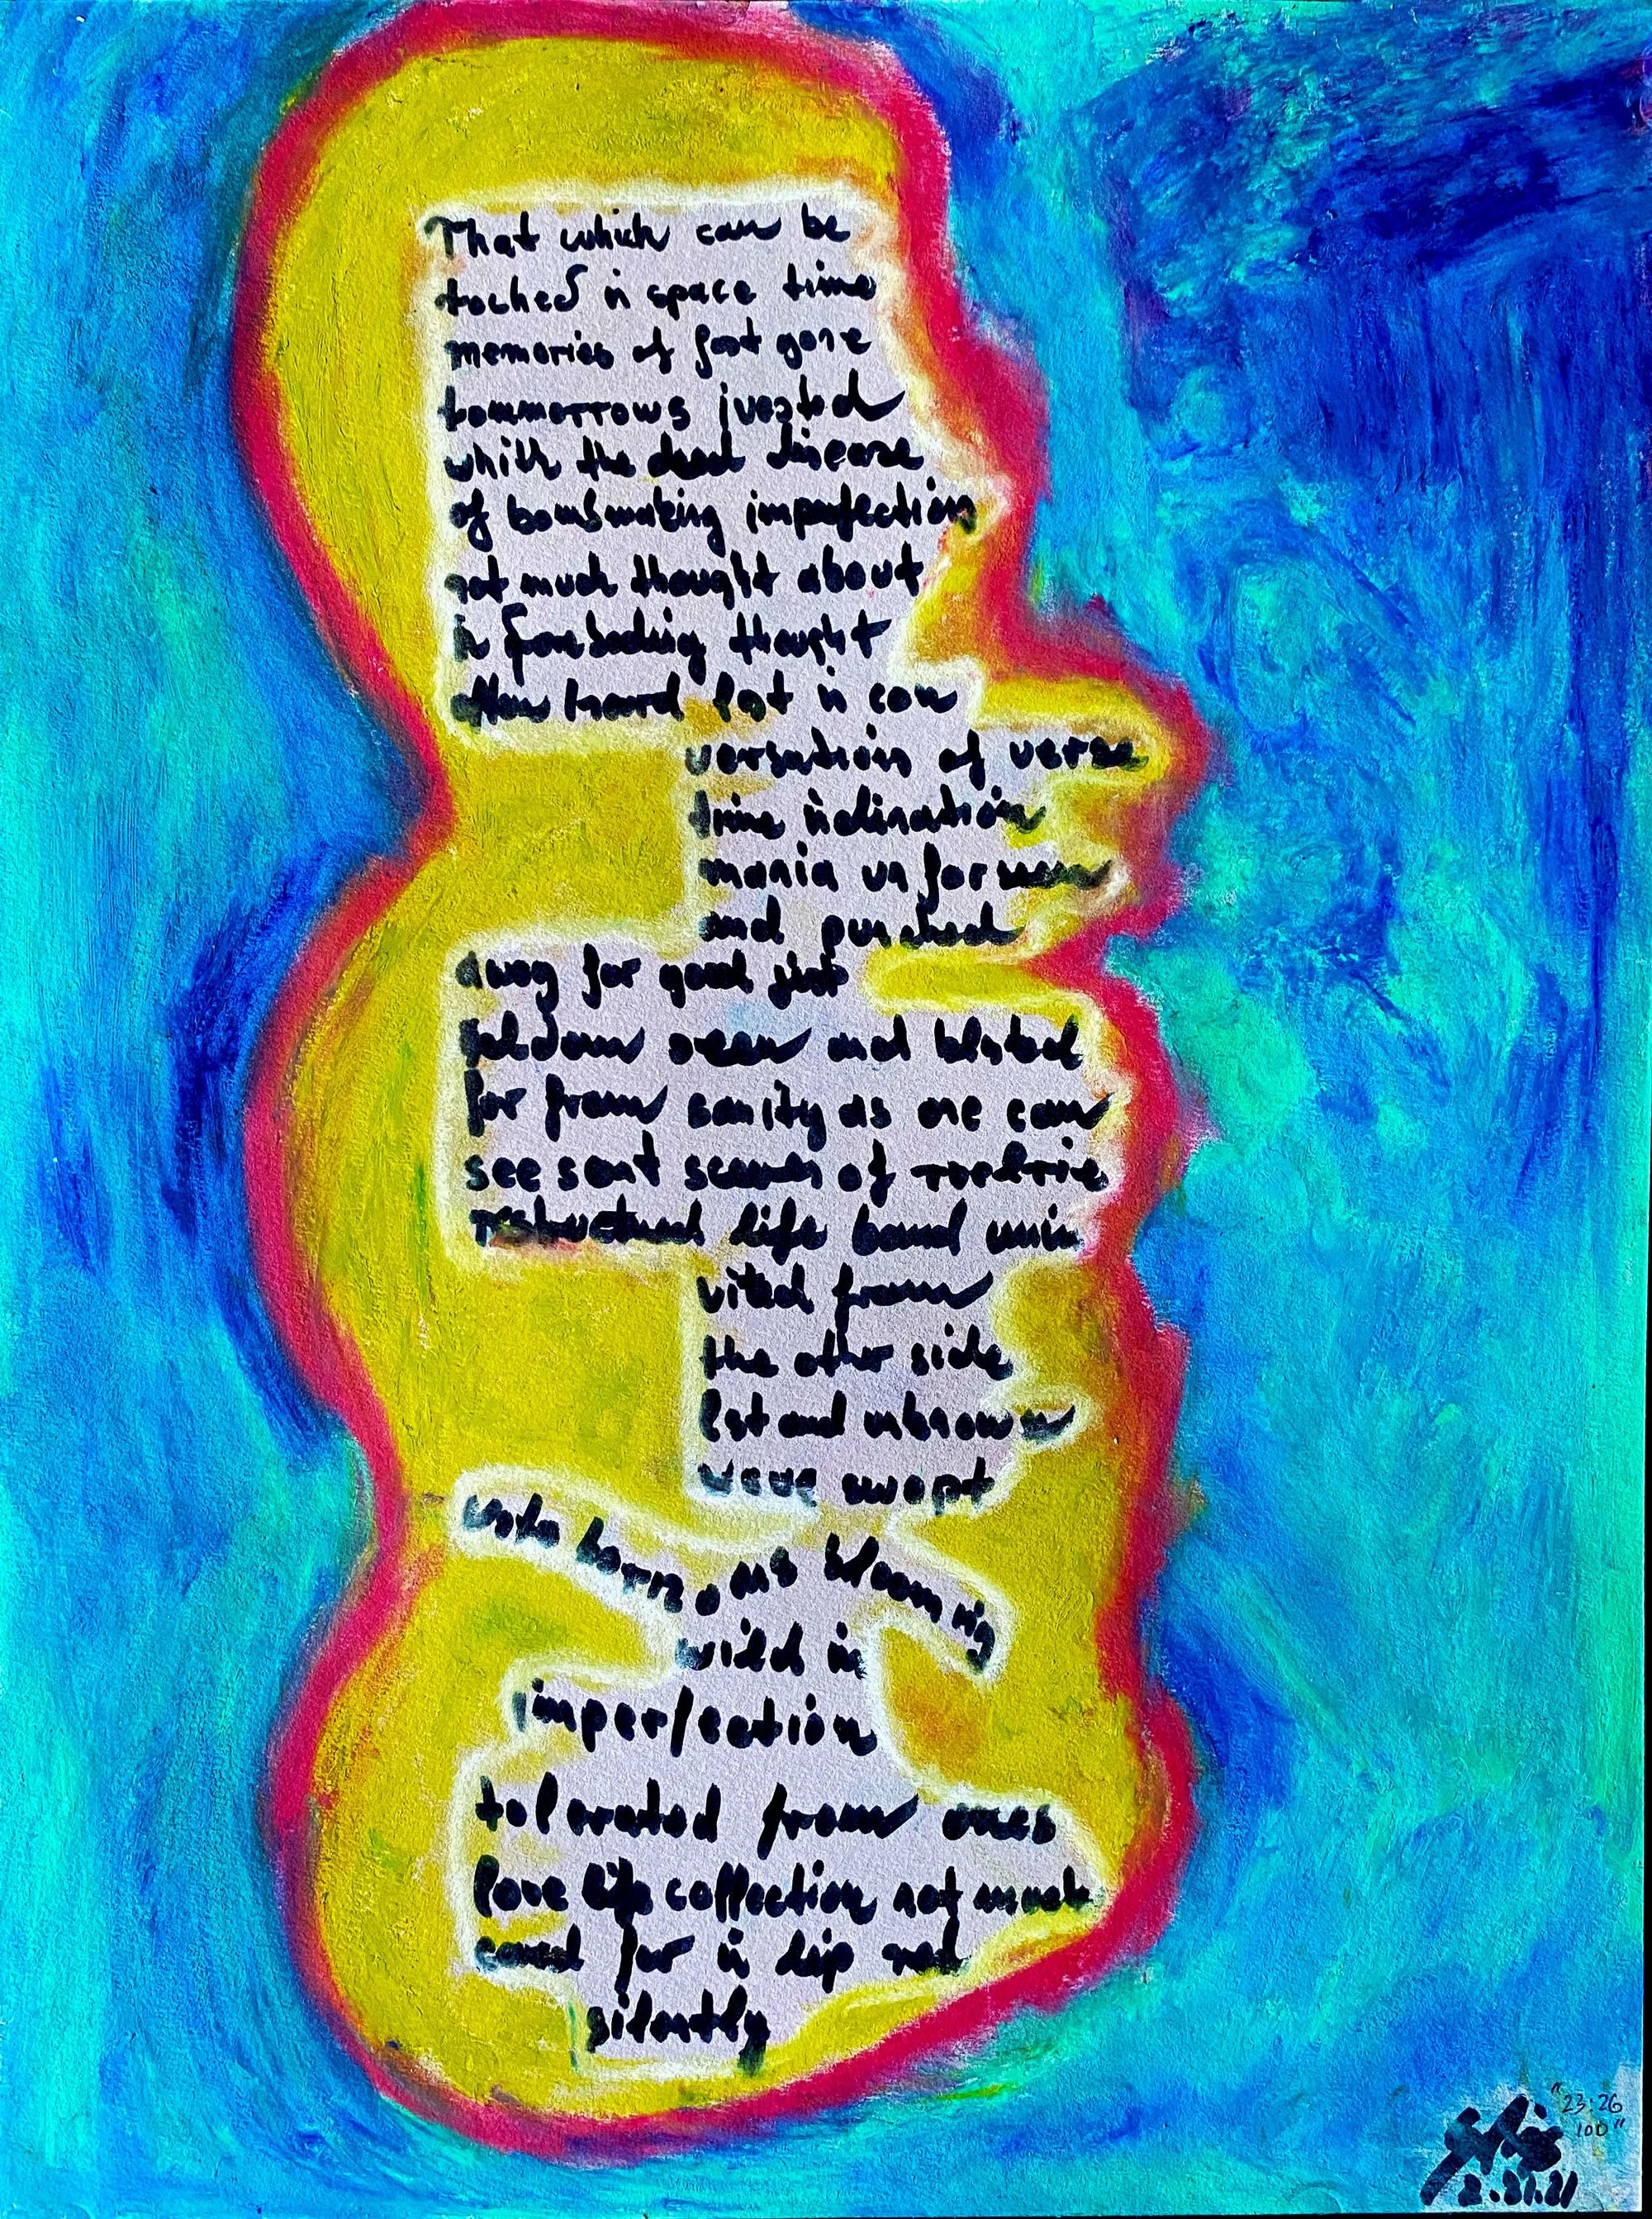 That which can be
toched in space time
memories of fast gone
tommorrows jvested
which the dead disease
of bombmaking imperfection
not much thought about
in foreboding thought
heard lost in con
versation of verse
time inclination
mania un for
and punched
away for good
seldom seen and bloted
far from sanity as one can
see sent scenes of
life bond unin
vited from
the other side
lost and unknown
wave swept
onto horrizons blooming
wild in
imperfection
tolerated from ones
love life collection not much
cared for in dip red
silently
"23:26
100"